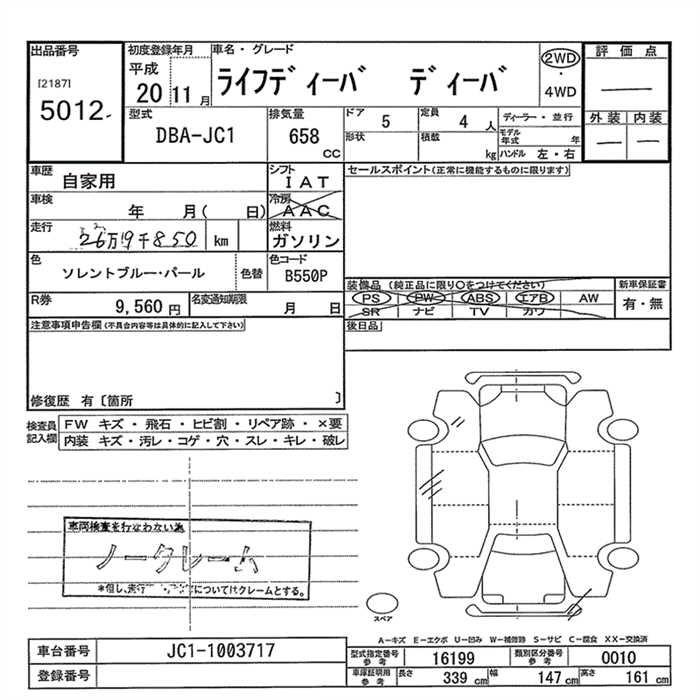 出品番号
[2187]
5012
初度登録年月
平成
20 11 月
車名・グレード
ライフディーバ ディーバ
2WD
・
4WD
評価点
—
外装 内装
— —
型式
DBA-JC1
排気量
658
CC
ドア
5
定員
4 人
形状
積載
kg
ディーラー・並行
モデル年式 年
ハンドル 左・右
車歴
自家用
シフト
IAT
車検
年 月( 日)
冷房
AAC
走行
26万9千850 km
燃料
ガソリン
色
ソレントブルー・パール
色替
色コード
B550P
R券
9,560 円
名変通知期限
月 日
セールスポイント(正常に機能するものに限ります)
装備品 (純正品に限り○をつけてください)
PS PW ABS エアB AW
SR ナビ TV カワ
新車保証書
有・無
後日品
注意事項申告欄(不具合内容等は具体的に記入して下さい)
修復歴 有〔箇所 〕
検査員記入欄
FW キズ・飛石・ヒビ割・リペア跡・×要
内装 キズ・汚レ・コゲ・穴・スレ・キレ・破レ
車両検査を行なわない為
ノークレーム
*但し、走行 についてはクレームとする。
スペア
A-キズ E-エクボ U-凹み W-補修跡 S-サビ C-腐食 XX-交換済
車台番号
JC1-1003717
登録番号
型式指定番号
参考
16199
類別区分番号
参考
0010
車庫証明用
参考
長さ
339 cm
幅
147 cm
高さ
161 cm